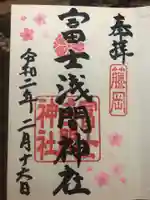 奉拝
藤岡
富士浅間神社
神社
令和二年二月十六日